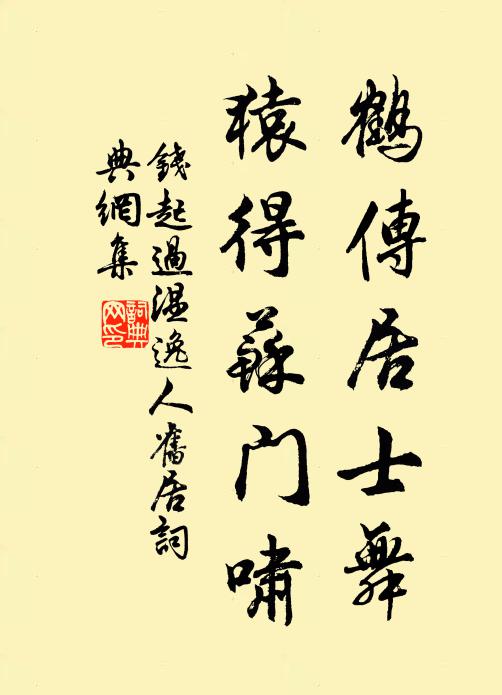 鶴傳居士舞
猿得蘇門嘯
錢起過溫逸人舊居詞
典網集
詞典
网印